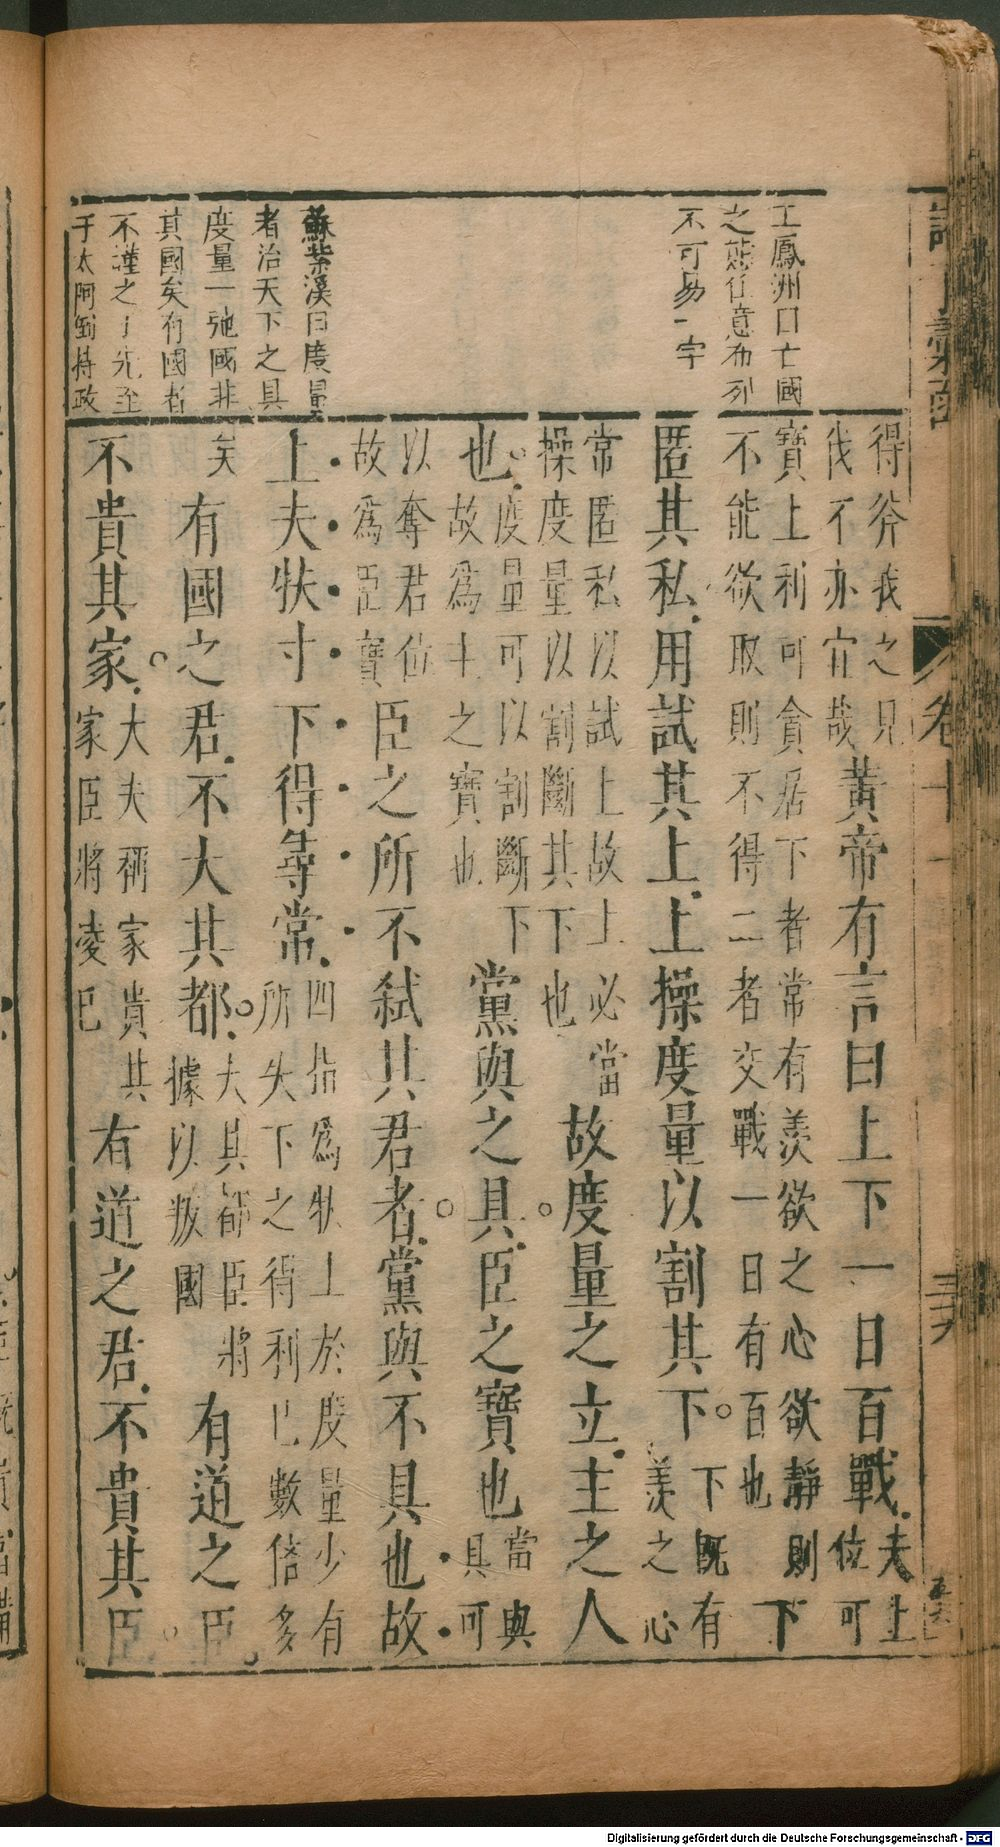 諸子彙函
卷十一
王鳳洲曰亡國
之態任意布列
不可易一字
蘇紫溪曰度量
者治天下之具
度量一弛國非
其國矣有國者
不謹之于先至
于太阿倒持政
得斧我之兄
伐不亦宜哉
黃帝有言曰上下一日百戰
夫上
位可
寶上利可貪居下者常有羨欲之心欲靜則
不能欲取則不得二者交戰一日有百也
下
匿其私用試其上上操度量以割其下
下既有
羨之心
常匿私以試上故上必當
操度量以割斷其下也
故度量之立主之人
也
度量可以割斷下
故爲主之寶也
黨與之具臣之寶也
當與
具可
以奪君位
故爲臣寶
臣之所不弑其君者黨與不具也故
上夫扶寸下得尋常
四指爲扶上於度量少有
所失下之得利已數倍多
矣
有國之君不大其都
大其都臣將
據以叛國
有道之臣
不貴其家
大夫稱家貴其
家臣將凌已
有道之君不貴其臣
Digitalisierung gefördert durch die Deutsche Forschungsgemeinschaft - DFG